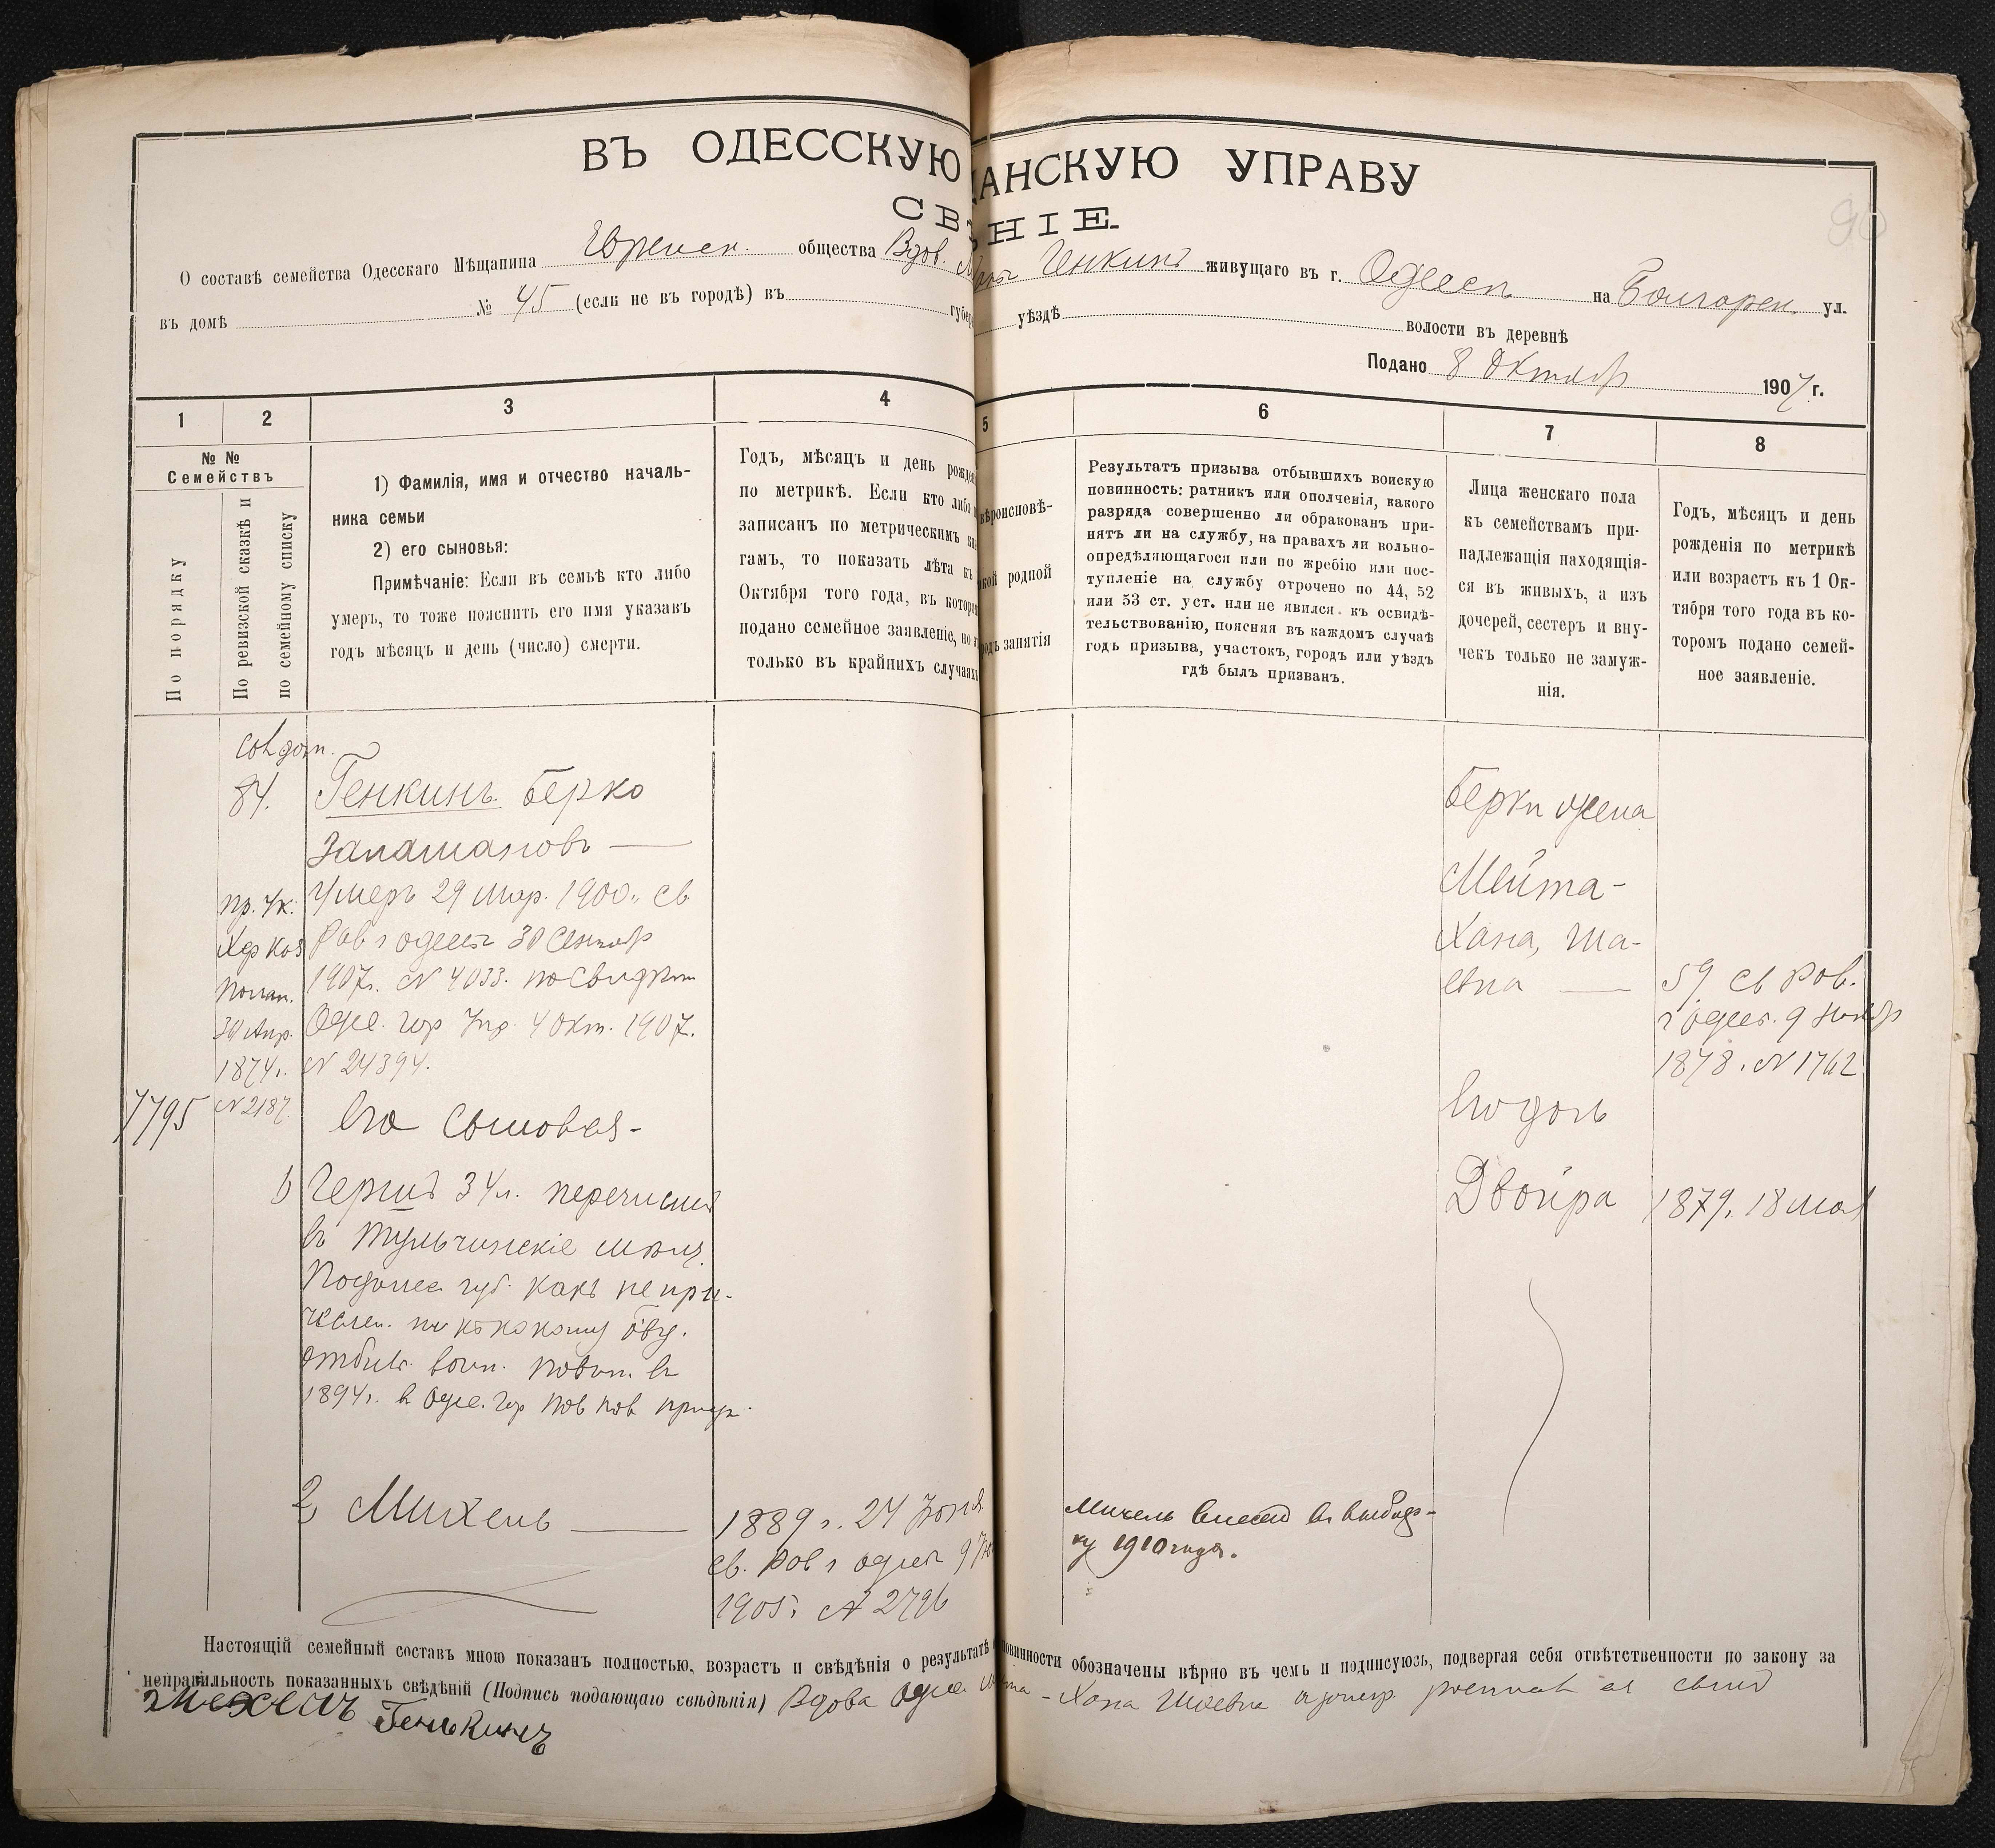 ВЪ ОДЕССКУЮ ЩАНСКУЮ УПРАВУ
СВѢ НІЕ.
О составѣ семейства Одесскаго Мѣщанина Еврейск. общества Вдов. Генкинъ живущаго въ г. Одессѣ на Болгарск. ул.
въ домѣ № 45 (если не въ городѣ) въ губер уѣздѣ волости въ деревнѣ
Подано 8 Октябр 1907 г.
90
1 2 3 4 5 6 7 8
№ №
Семействъ
По порядку
По ревизской сказкѣ и
по семейному списку
1) Фамилія, имя и отчество началь-
ника семьи
2) его сыновья:
Примѣчаніе: Если въ семьѣ кто либо
умеръ, то тоже пояснить его имя указавъ
годъ мѣсяцъ и день (число) смерти.
Годъ, мѣсяцъ и день рожден
по метрикѣ. Если кто либо
записанъ по метрическимъ кни
гамъ, то показать лѣта къ
Октября того года, въ которо
подано семейное заявленіе, но э
только въ крайнихъ случаяхъ
вѣроисповѣ-
кой родной
родъ занятія
Результатъ призыва отбывшихъ воискую
повинность: ратникъ или ополченія, какого
разряда совершенно ли обракованъ при-
нятъ ли на службу, на правахъ ли вольно-
опредѣляющагося или по жребію или пос-
тупленіе на службу отрочено по 44, 52
или 53 ст. уст. или не явился къ освидѣ-
тельствованію, поясняя въ каждомъ случаѣ
годъ призыва, участокъ, городъ или уѣздъ
гдѣ былъ призванъ.
Лица женскаго пола
къ семействамъ при-
надлежащія находящія-
ся въ живыхъ, а изъ
дочерей, сестеръ и вну-
чекъ только не замуж-
нія.
Годъ, мѣсяцъ и день
рожденія по метрикѣ
или возрастъ къ 1 Ок-
тября того года въ ко-
торомъ подано семей-
ное заявленіе.
84.
Пр. Ук.
30 Апр.
1874 г.
№ 2187
7795
Генкинъ Берко
Залмановъ —
Умеръ 29 Мар. 1900 г. св
Рав г Одессы 30 Сентяб
1907 г. № 4033. по Свидѣт
Одес. гор Упр. 4 Окт. 1907.
№ 24394.
Его Сыновья-
1 Гершъ 34 л. перечислен
въ Тульчинскіе мѣщ.
Подольс. губ. какъ не при-
числен. ни къ какому Общ.
отбыв. воин. повин. въ
1894 г. въ Одес. гор
2 Михель —
1889 г. 24 Іюня
св. Рав г Одес 9
1905 г. № 2796
Михель внесенъ въ
1910 года.
Берки жена
Мейта-
Хана, Ша-
евна —
59 св Рав.
г Одес. 9 Ноябр
1878. № 1762
Его дочь
Двойра 1879, 18 мая
Настоящій семейный составъ мною показанъ полностью, возрастъ и свѣдѣнія о результатѣ повинности обозначены вѣрно въ чемъ и подписуюсь, подвергая себя отвѣтственности по закону за
неправильность показанныхъ свѣдѣній (Подпись подающаго свѣдѣнія) Вдова Одес Хана Шаевна сынъ
Михель Генькинъ